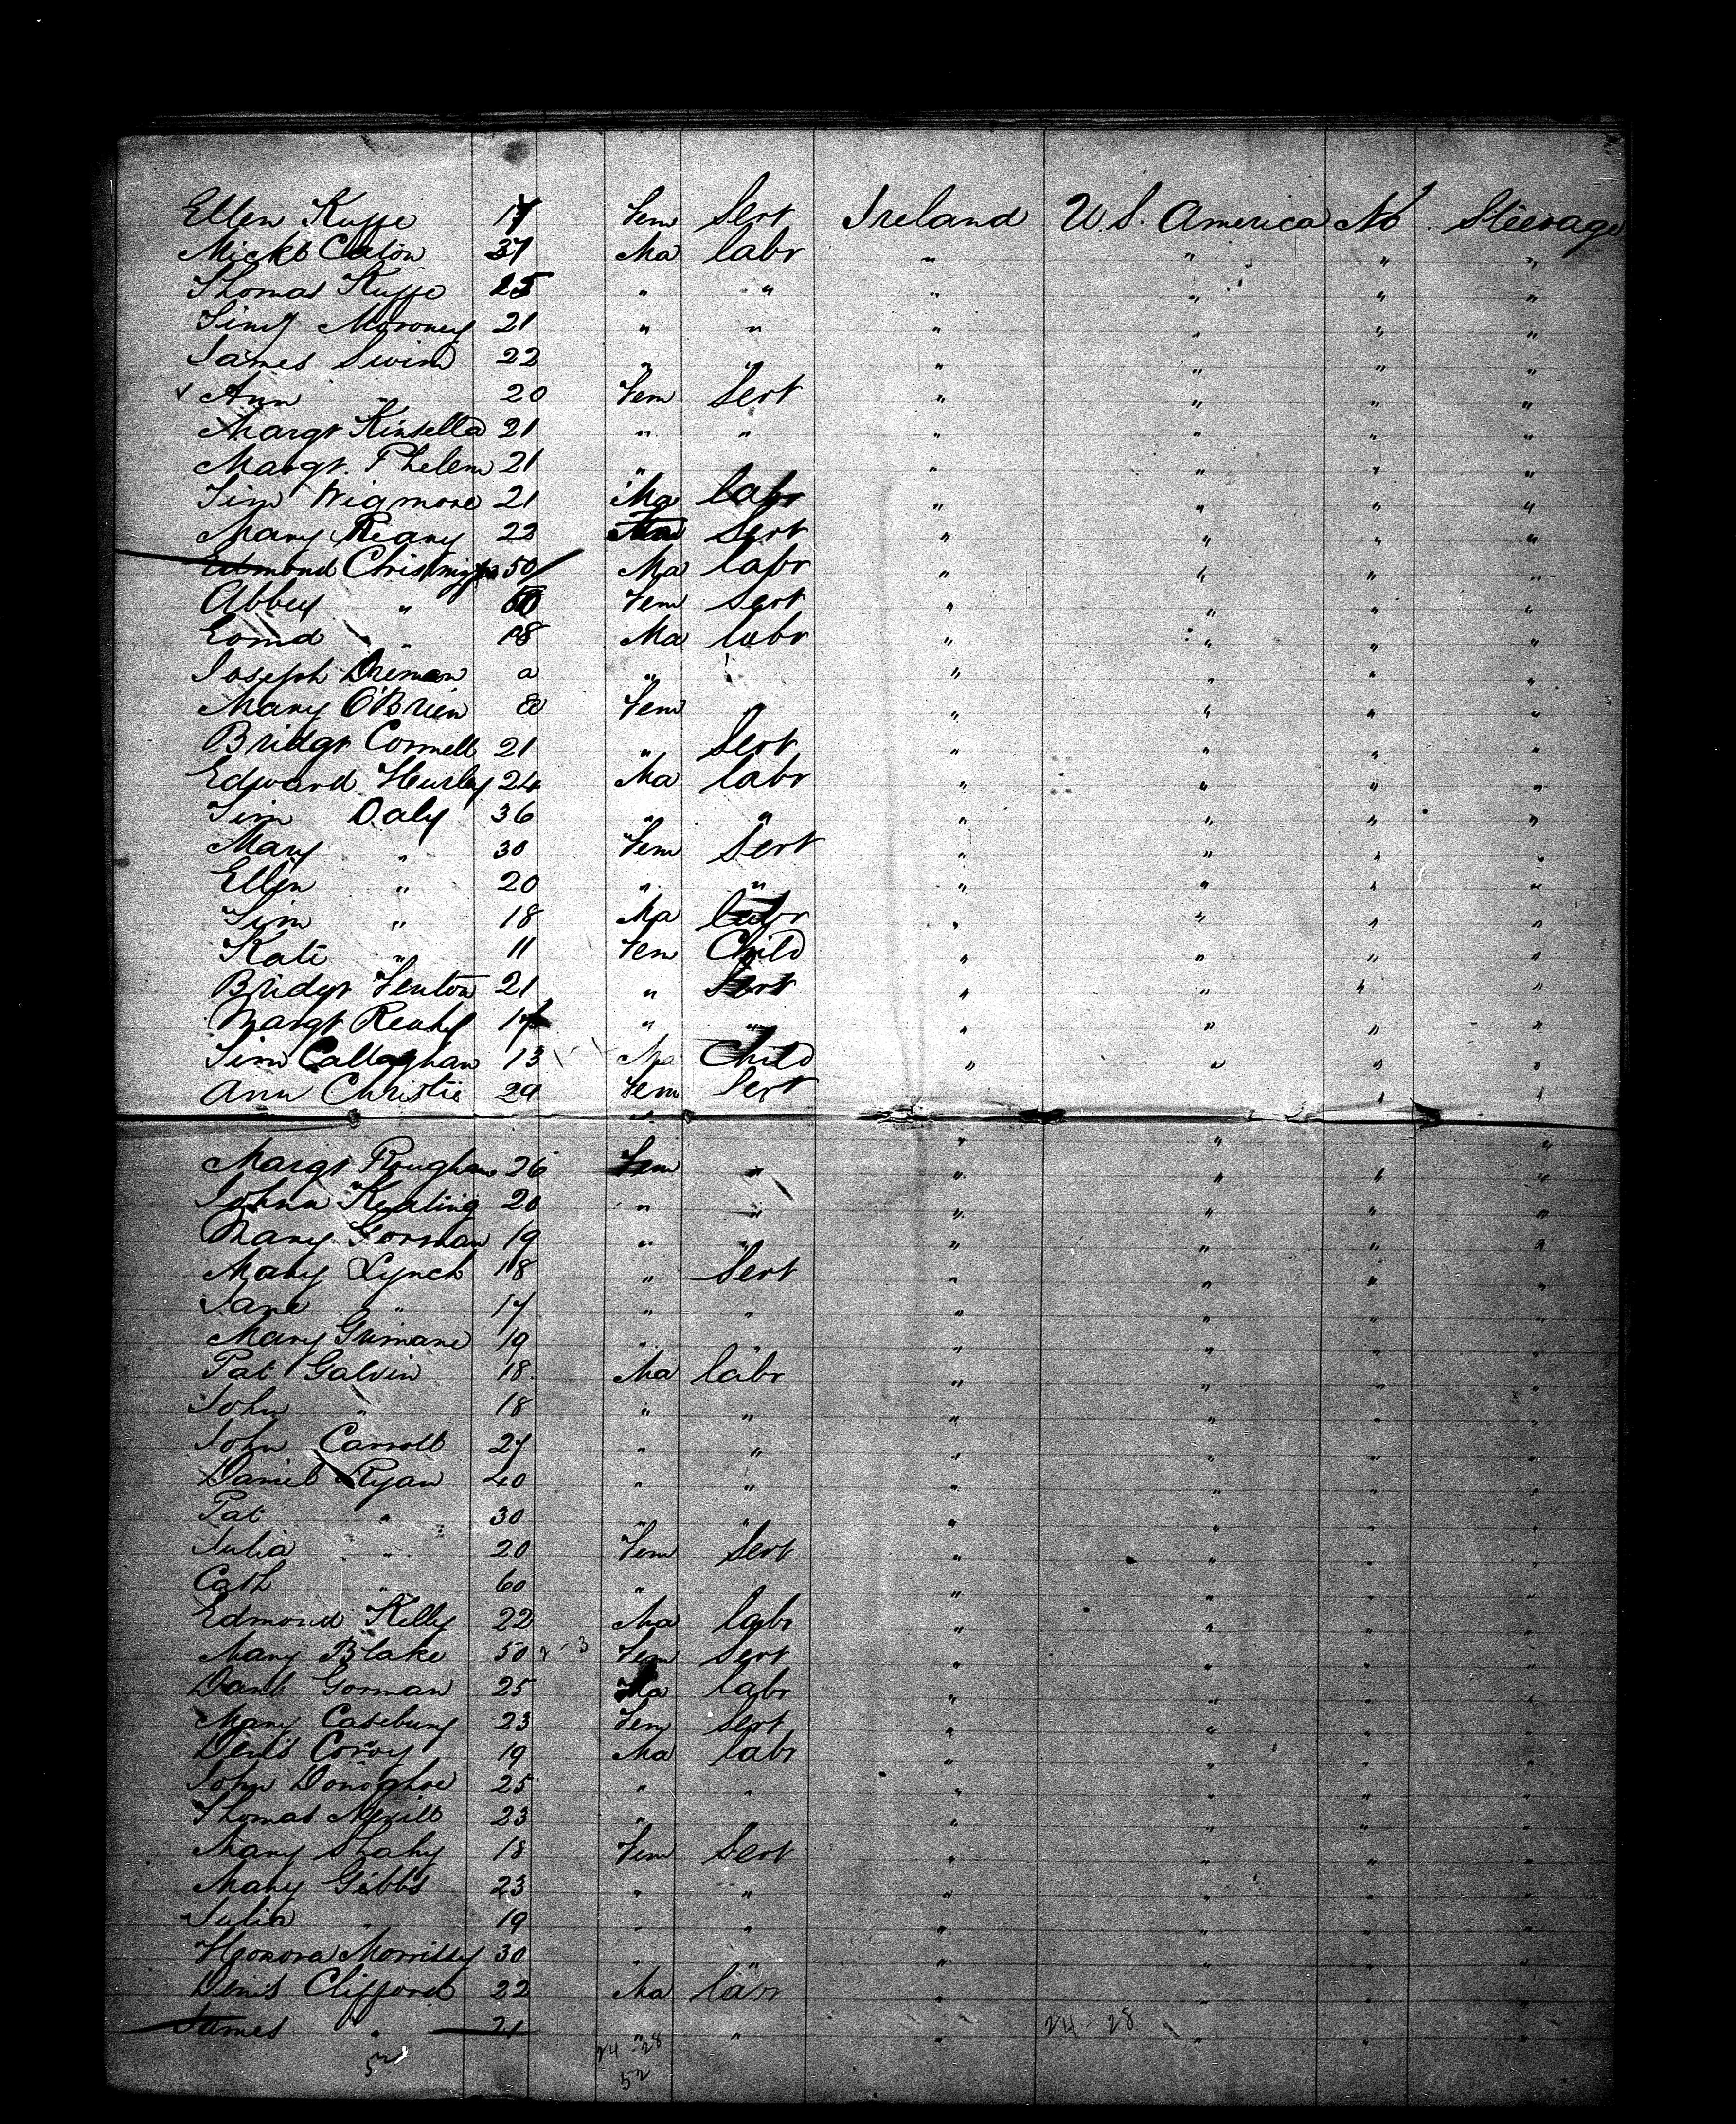 Ellen Kuffe 17 Fem Sert Ireland U.S. America No Steerage
Mickl Caton 37 Ma labr " " " "
Thomas Kuffe 25 " " " " " "
Timy Moroney 21 " " " " " "
James Swim 22 " " " " "
Ann " 20 Fem Sert " " " "
Margt Kinsella 21 " " " " " "
Margt. Phelem 21 " " " " "
Tim Wigmore 21 Ma labr " " " "
Mary Reany 22 Sert " " " "
Edmond 50 Ma labr " " " "
Abbey " Fem Sert " " " "
Edmd " 18 Ma labr " " " "
Joseph " " " " "
Mary O'Brien Fem " " " "
Bridgt Connell 21 " Sert " " " "
Edward Hurley 24 Ma labr " " " "
Tim Daly 36 " " " " " "
Mary " 30 Fem Sert " " " "
Ellen " 20 " " " " " "
Tim " 18 Ma labr " " " "
Kate " 11 Fem Child " " " "
Bridgt Fenton 21 " Sert " " " "
Margt Reahy 17 " " " " " "
Tim Callaghan 13 Ma Child " " " "
Ann Christie 29 Fem Sert " "
" " "
Margt Roughan 26 Fem " " " " "
Johna Keating 20 " " " " " "
Mary Gorman 19 " " " " " "
Mary Lynch 18 " Sert " " " "
Jane " 17 " " " " " "
Mary Grimane 19 " " " " " "
Pat Galvin 18 Ma labr " " " "
John " 18 " " " " " "
John Carroll 27 " " " " " "
Daniel Ryan 40 " " " " " "
Pat " 30 " " " " " "
Julia " 20 Fem Sert " " " "
Cath " 60 " " " " "
Edmond Kelly 22 Ma labr " " " "
Mary Blake 50 Fem Sert " " " "
Danl Gorman 25 Ma labr " " " "
Mary Casebury 23 Fem Sert " " " "
Denis Coroy 19 Ma labr " " " "
John Donoghoe 25 " " " " " "
Thomas 23 " " " " "
Mary Shahy 18 Fem Sert " " " "
Mary Gibbs 23 " " " " " "
Julia " 19 " " " " " "
Honora Morrissy 30 " " " " " "
Denis Clifford 22 Ma labr " " " "
James " 21 " " " " " "
24-28
24-28
52
52